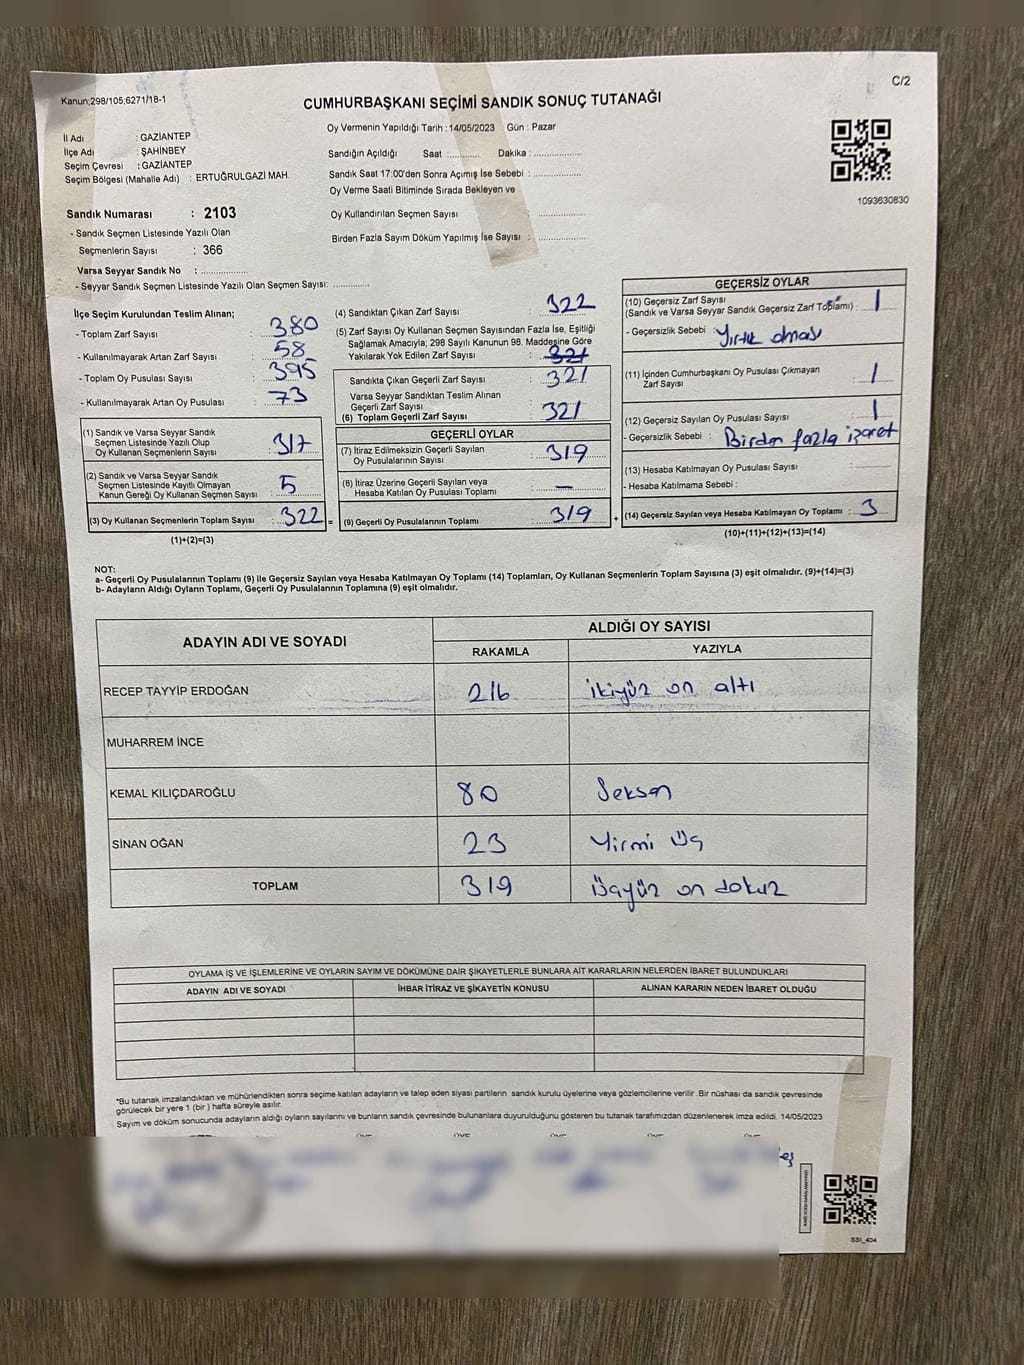 Kanun;298/105;6271/18-1
C/2
CUMHURBAŞKANI SEÇİMİ SANDIK SONUÇ TUTANAĞI
Oy Vermenin Yapıldığı Tarih :14/05/2023 Gün : Pazar
İl Adı : GAZİANTEP
İlçe Adı : ŞAHİNBEY
Seçim Çevresi : GAZİANTEP
Seçim Bölgesi (Mahalle Adı) : ERTUĞRULGAZİ MAH.
Sandığın Açıldığı Saat :........... Dakika :................
Sandık Saat 17:00'den Sonra Açımış İse Sebebi :................
Oy Verme Saati Bitiminde Sırada Bekleyen ve
Oy Kullandırılan Seçmen Sayısı :................
Birden Fazla Sayım Döküm Yapılmış İse Sayısı :................
1093630830
Sandık Numarası : 2103
- Sandık Seçmen Listesinde Yazılı Olan
Seçmenlerin Sayısı : 366
Varsa Seyyar Sandık No :................
- Seyyar Sandık Seçmen Listesinde Yazılı Olan Seçmen Sayısı:............
İlçe Seçim Kurulundan Teslim Alınan;
- Toplam Zarf Sayısı : 380
- Kullanılmayarak Artan Zarf Sayısı : 58
- Toplam Oy Pusulası Sayısı : 395
- Kullanılmayarak Artan Oy Pusulası : 73
(1) Sandık ve Varsa Seyyar Sandık
Seçmen Listesinde Yazılı Olup
Oy Kullanan Seçmenlerin Sayısı : 317
(2) Sandık ve Varsa Seyyar Sandık
Seçmen Listesinde Kayıtlı Olmayan
Kanun Gereği Oy Kullanan Seçmen Sayısı : 5
(3) Oy Kullanan Seçmenlerin Toplam Sayısı : 322 =
(1)+(2)=(3)
(4) Sandıktan Çıkan Zarf Sayısı : 322
(5) Zarf Sayısı Oy Kullanan Seçmen Sayısından Fazla İse, Eşitliği
Sağlamak Amacıyla; 298 Sayılı Kanunun 98. Maddesine Göre
Yakılarak Yok Edilen Zarf Sayısı : 321
Sandıkta Çıkan Geçerli Zarf Sayısı : 321
Varsa Seyyar Sandıktan Teslim Alınan
Geçerli Zarf Sayısı :
(6) Toplam Geçerli Zarf Sayısı 321
GEÇERLİ OYLAR
(7) İtiraz Edilmeksizin Geçerli Sayılan
Oy Pusulalarının Sayısı : 319
(8) İtiraz Üzerine Geçerli Sayılan veya
Hesaba Katılan Oy Pusulası Toplamı : —
(9) Geçerli Oy Pusulalarının Toplamı : 319 +
GEÇERSİZ OYLAR
(10) Geçersiz Zarf Sayısı
(Sandık ve Varsa Seyyar Sandık Geçersiz Zarf Toplamı) : 1
- Geçersizlik Sebebi : Yırtık olması
(11) İçinden Cumhurbaşkanı Oy Pusulası Çıkmayan
Zarf Sayısı : 1
(12) Geçersiz Sayılan Oy Pusulası Sayısı : 1
- Geçersizlik Sebebi : Birden fazla işaret
(13) Hesaba Katılmayan Oy Pusulası Sayısı :............
- Hesaba Katılmama Sebebi :
(14) Geçersiz Sayılan veya Hesaba Katılmayan Oy Toplamı : 3
(10)+(11)+(12)+(13)=(14)
NOT:
a- Geçerli Oy Pusulalarının Toplamı (9) ile Geçersiz Sayılan veya Hesaba Katılmayan Oy Toplamı (14) Toplamları, Oy Kullanan Seçmenlerin Toplam Sayısına (3) eşit olmalıdır. (9)+(14)=(3)
b- Adayların Aldığı Oyların Toplamı, Geçerli Oy Pusulalarının Toplamına (9) eşit olmalıdır.
ADAYIN ADI VE SOYADI ALDIĞI OY SAYISI
RAKAMLA YAZIYLA
RECEP TAYYİP ERDOĞAN 216 ikiyüz on altı
MUHARREM İNCE
KEMAL KILIÇDAROĞLU 80 Seksen
SİNAN OĞAN 23 Yirmi üç
TOPLAM 319 Üçyüz on dokuz
OYLAMA İŞ VE İŞLEMLERİNE VE OYLARIN SAYIM VE DÖKÜMÜNE DAİR ŞİKAYETLERLE BUNLARA AİT KARARLARIN NELERDEN İBARET BULUNDUKLARI
ADAYIN ADI VE SOYADI İHBAR İTİRAZ VE ŞİKAYETİN KONUSU ALINAN KARARIN NEDEN İBARET OLDUĞU
*Bu tutanak imzalandıktan ve mühürlendikten sonra seçime katılan adayların ve talep eden siyasi partilerin sandık kurulu üyelerine veya gözlemcilerine verilir. Bir nüshası da sandık çevresinde
görülecek bir yere 1 (bir ) hafta süreyle asılır.
Sayım ve döküm sonucunda adayların aldığı oyların sayılarını ve bunların sandık çevresinde bulunanlara duyurulduğunu gösteren bu tutanak tarafımızdan düzenlenerek imza edildi. 14/05/2023
SSI_404